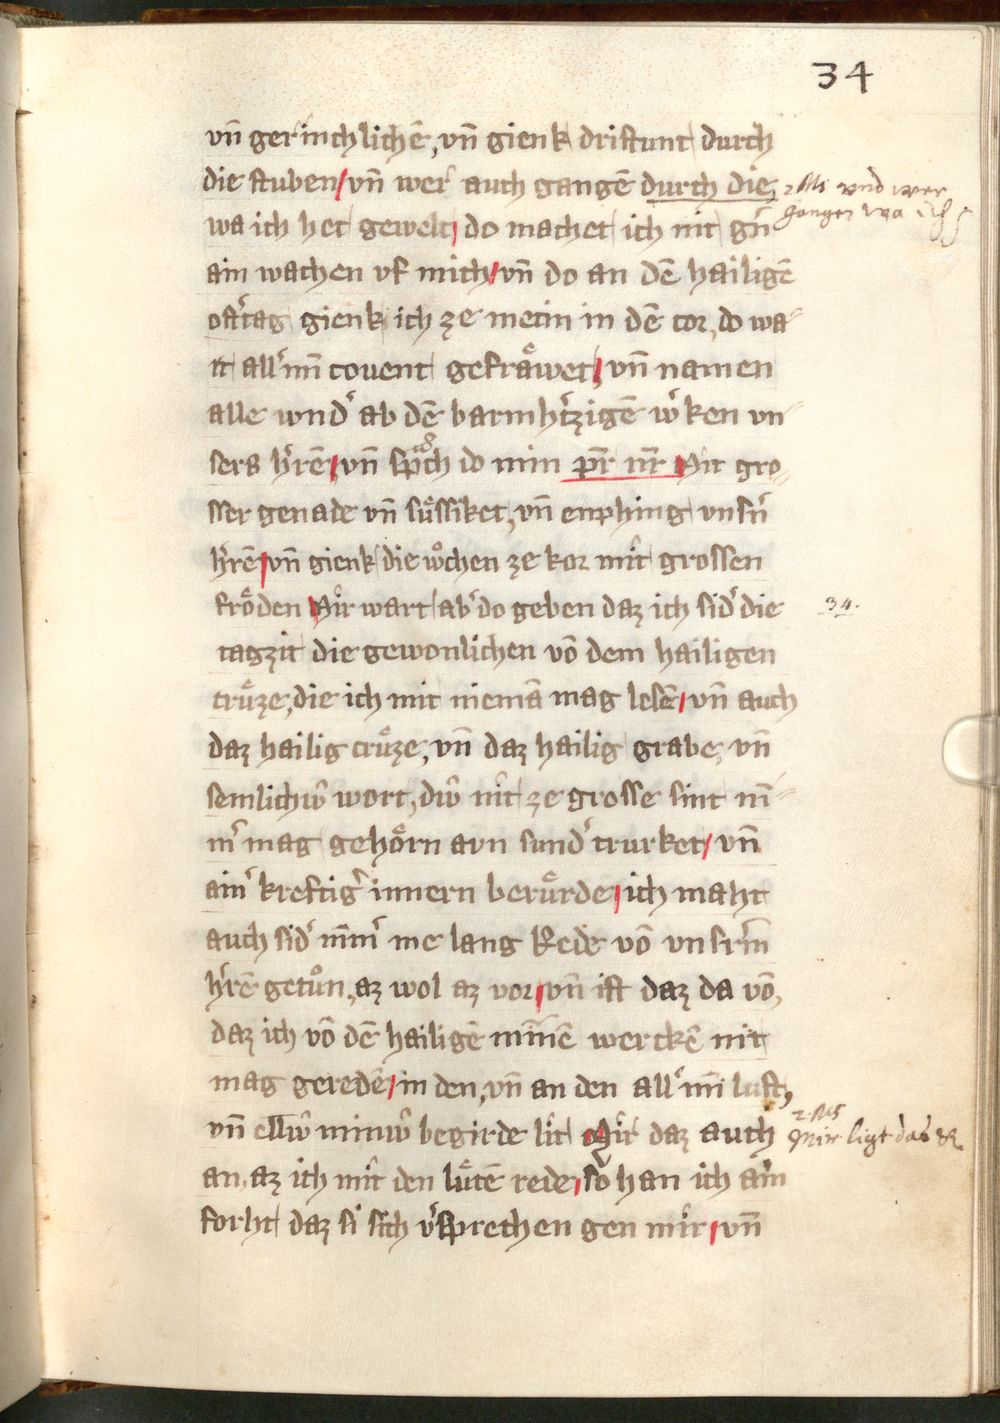 34
vñ gerinchlichē, vñ gienk dristunt durch
die stuben / vñ wer auch gangē durch die,
2 Ms und wer
gangen wa ich
wa ich het gewelt / do machet ich nit gn̄
ain wachen vf mich / vñ do an dē hailigē
ostˀtag gienk ich ze metin in dē cor, do wa-
rt allˀ min couent gefraͤwet / vñ namen
alle wndˀ ab dē barmhˀtzigē wˀken vn-
sers hˀrē / vñ spͣch do min pr̄ nr̄ Mit gro-
sser genade vñ suͤssiket, vñ enphing vnsˀn
hˀrē / vñ gienk die wͦchen ze kor mit grossen
froͤden Mir wart abˀ do geben daz ich sidˀ die
34.
tagzit die gewonlichen vō dem hailigen
cruͤze, die ich mit niemā mag lesē / vñ auch
daz hailig cruͤze, vñ daz hailig grabe, vñ
semlichiv̂ wort, div̂ mir ze grosse sint ni-
mˀ mag gehoͤrn avn sundˀ trurket / vñ
ainˀ kreftigˀ innern beruͤrde / ich maht
auch sidˀ nimˀ me lang Rede vō vnsrm
hˀrē getuͦn, az wol az vor / vñ ist daz da vō,
daz ich vō dē hailigē minnē werckē nit
mag geredē / in den, vñ an den allˀ min lust,
vñ elliv̂ miniv̂ begirde lit Mir daz auch
2. Ms
Mir ligt das &
an, az ich mit den luͤtē rede / so han ich ain
forht daz si sich vˀsprechen gen mir / vñ